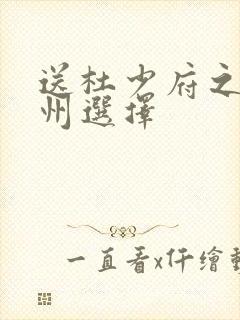 送杜少府之
州選擇
一直看x仟繪動